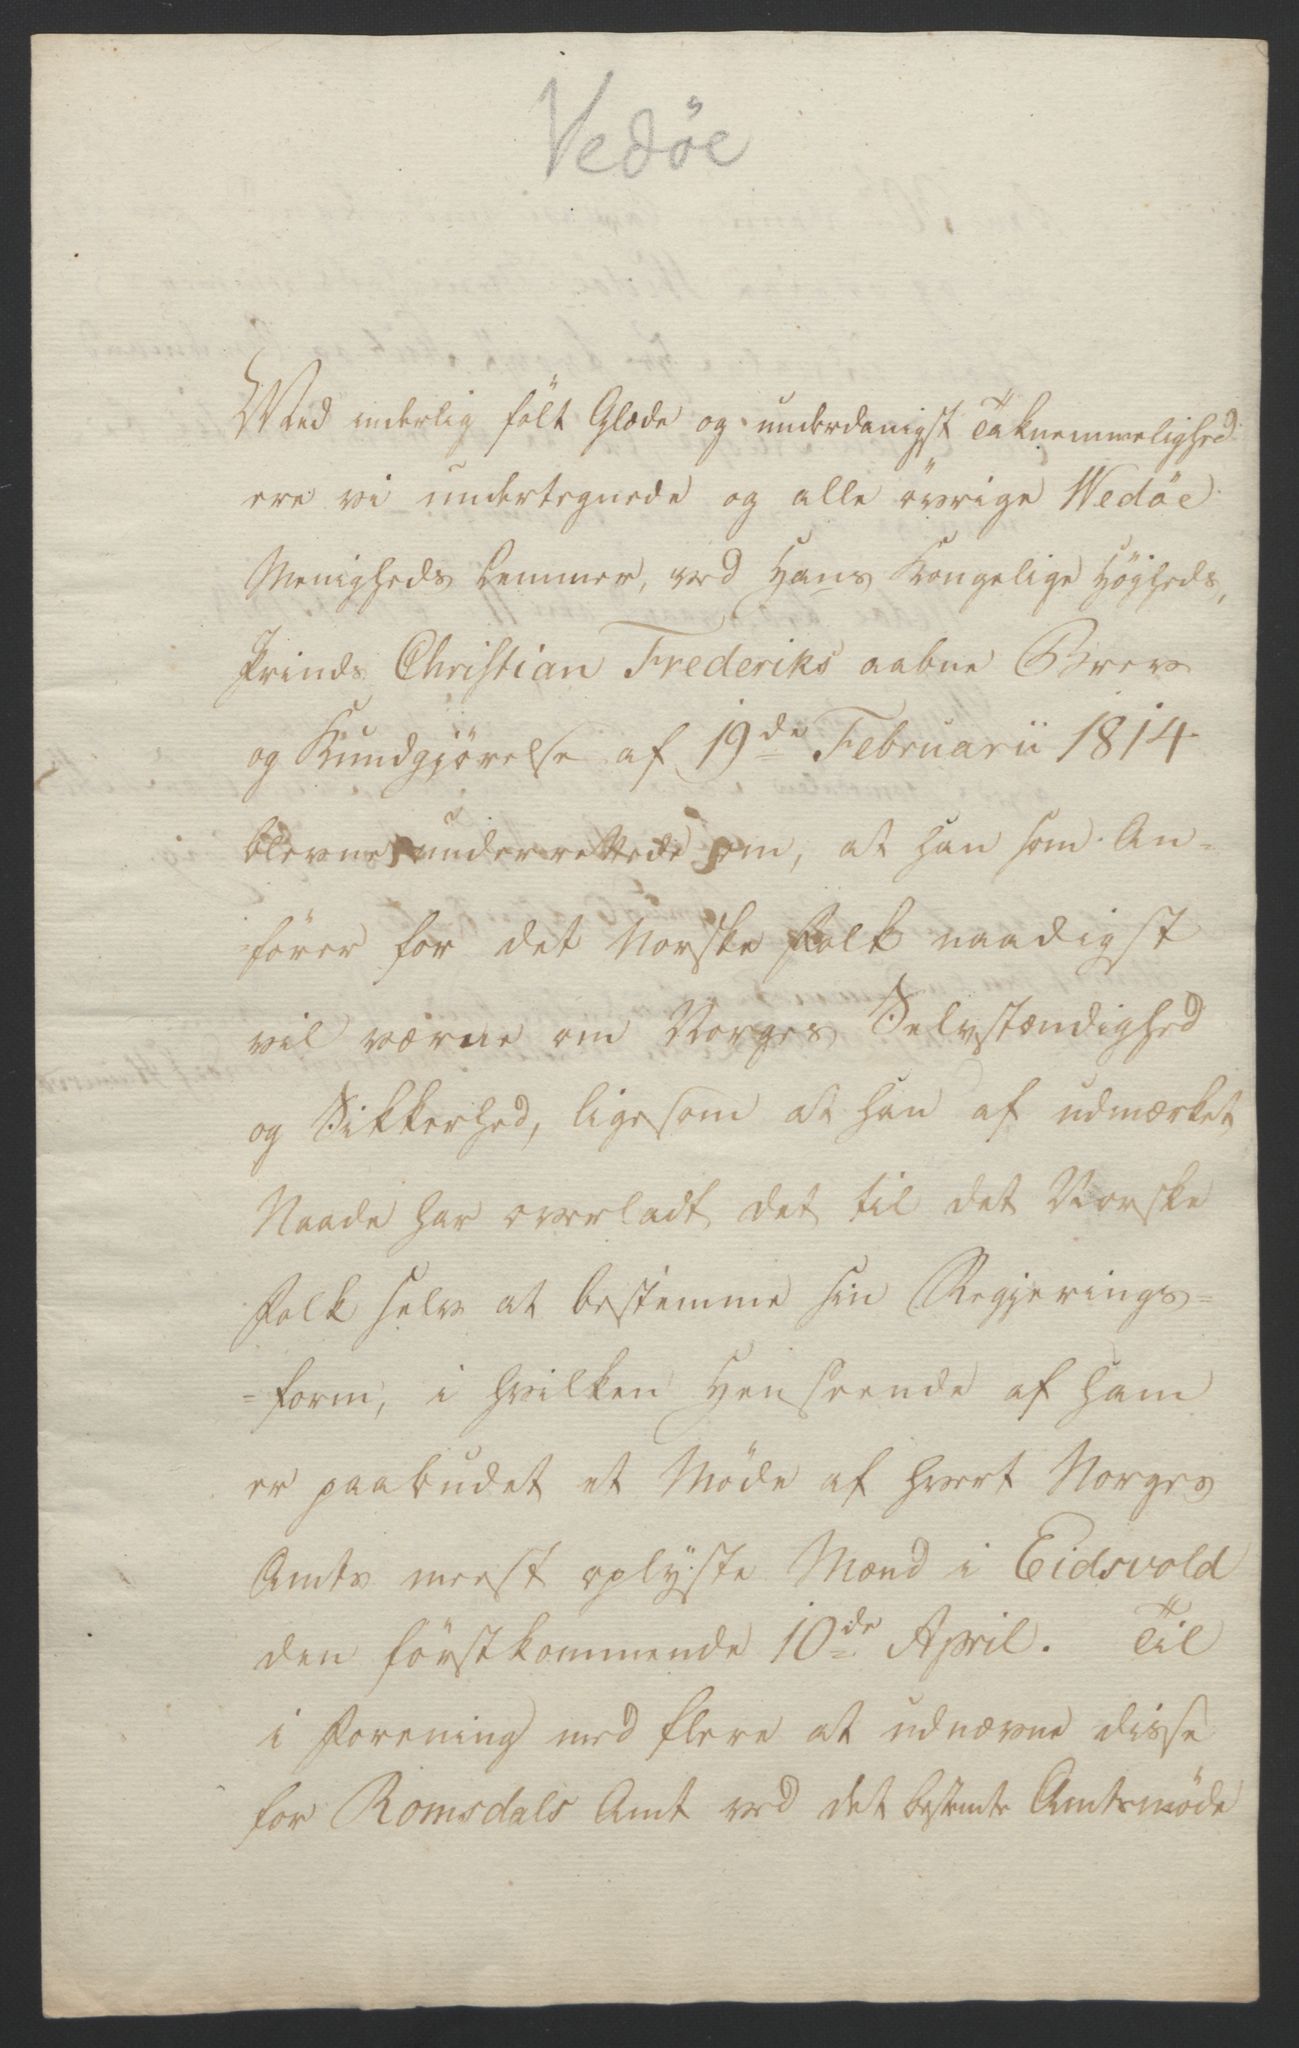 Vedöe
Med inderlig fölt Glæde og underdanigst Taknemmelighed
ere vi undertegnede og alle övrige Wedöe
Menigheds Lemmer, ved Hans Kongelige Höjheds,
Prinds Christian Frederiks aabne Brev
og Kundgjörelse af 19de Februarii 1814
blevne underrettede om, at han som An-
förer for det Norske Folk naadigst
vil værne om Norges Selvstændighed
og Sikkerhed, ligesom at han af udmærket
Naade har overladt det til det Norske
Folk selv at bestemme sin Regjerings-
-form, i hvilken Henseende af ham
er paabudet et Möde af hvert Norges
Amts meest oplyste Mænd i Eidsvold
den förstkommende 10de April. Til
i Forening med flere at udnævne disse
for Romsdals Amt ved det bestemte Amtsmöde